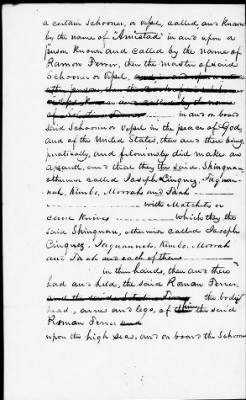 a certain Schooner, or Vessel, called, and known
by the name of "Amistad" in and upon a
person known and called by the name of
Ramon Ferrer, then the master of said
Schooner or Vessel,
in and on board
said Schooner or Vessel in the peace of God,
and of the United States, then and there being
piratically, and feloniously did make an
assault, and that they the said Shinquau,
otherwise called Joseph Cinquez,
Kimbo, Morrah and
with Matchets, or
cane knives which they the
said Shinquau, otherwise called Joseph
Cinquez, Kimbo, Morrah
and and each of them
in their hands, then and there
had and held, the said Roman Ferrer,
the body
head, arms and legs, of him the said
Roman Ferrer and
upon the high seas, and on board the Schooner